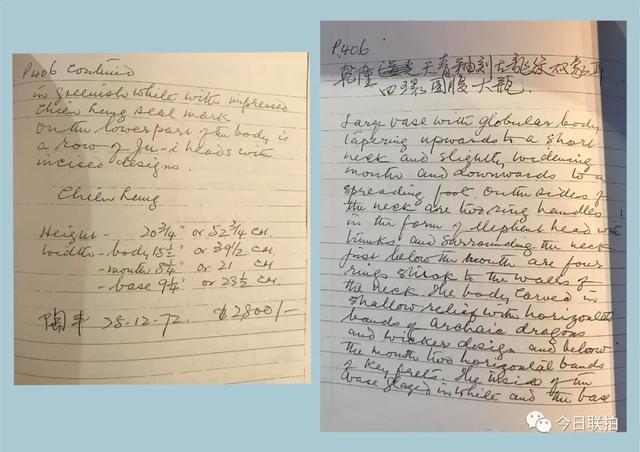 P.406 Continued
in greenish white with impressed
Chien Lung seal mark
on the lower part of the body is
a row of Ju-i heads with
incised designs.
Chien Lung
Height - 20 3/4" or 52 3/4 CM.
Width - body 15 1/2" or 39 1/2 CM.
- mouth 8 1/4" or 21 CM
- base 9 1/4" or 23 1/2 CM
28.12.72. $2,800/-
P.406
乾隆 天青釉刻古龍紋双象耳
四环圓腹大瓶.
Large vase with globular body
tapering upwards to a short
neck and slightly widening
mouth and downwards to a
spreading foot. On the sides of
the neck are two ring handles
in the form of elephant head with
trunks and surrounding the neck
just below the mouth are four
rings stuck to the walls of
the neck. The body carved in
shallow relief with horizontal
bands of archaic dragons
and wicker design and below
the mouth two horizontal bands
of key frets. The inside of the
base glazed in white and the base
今日联拍